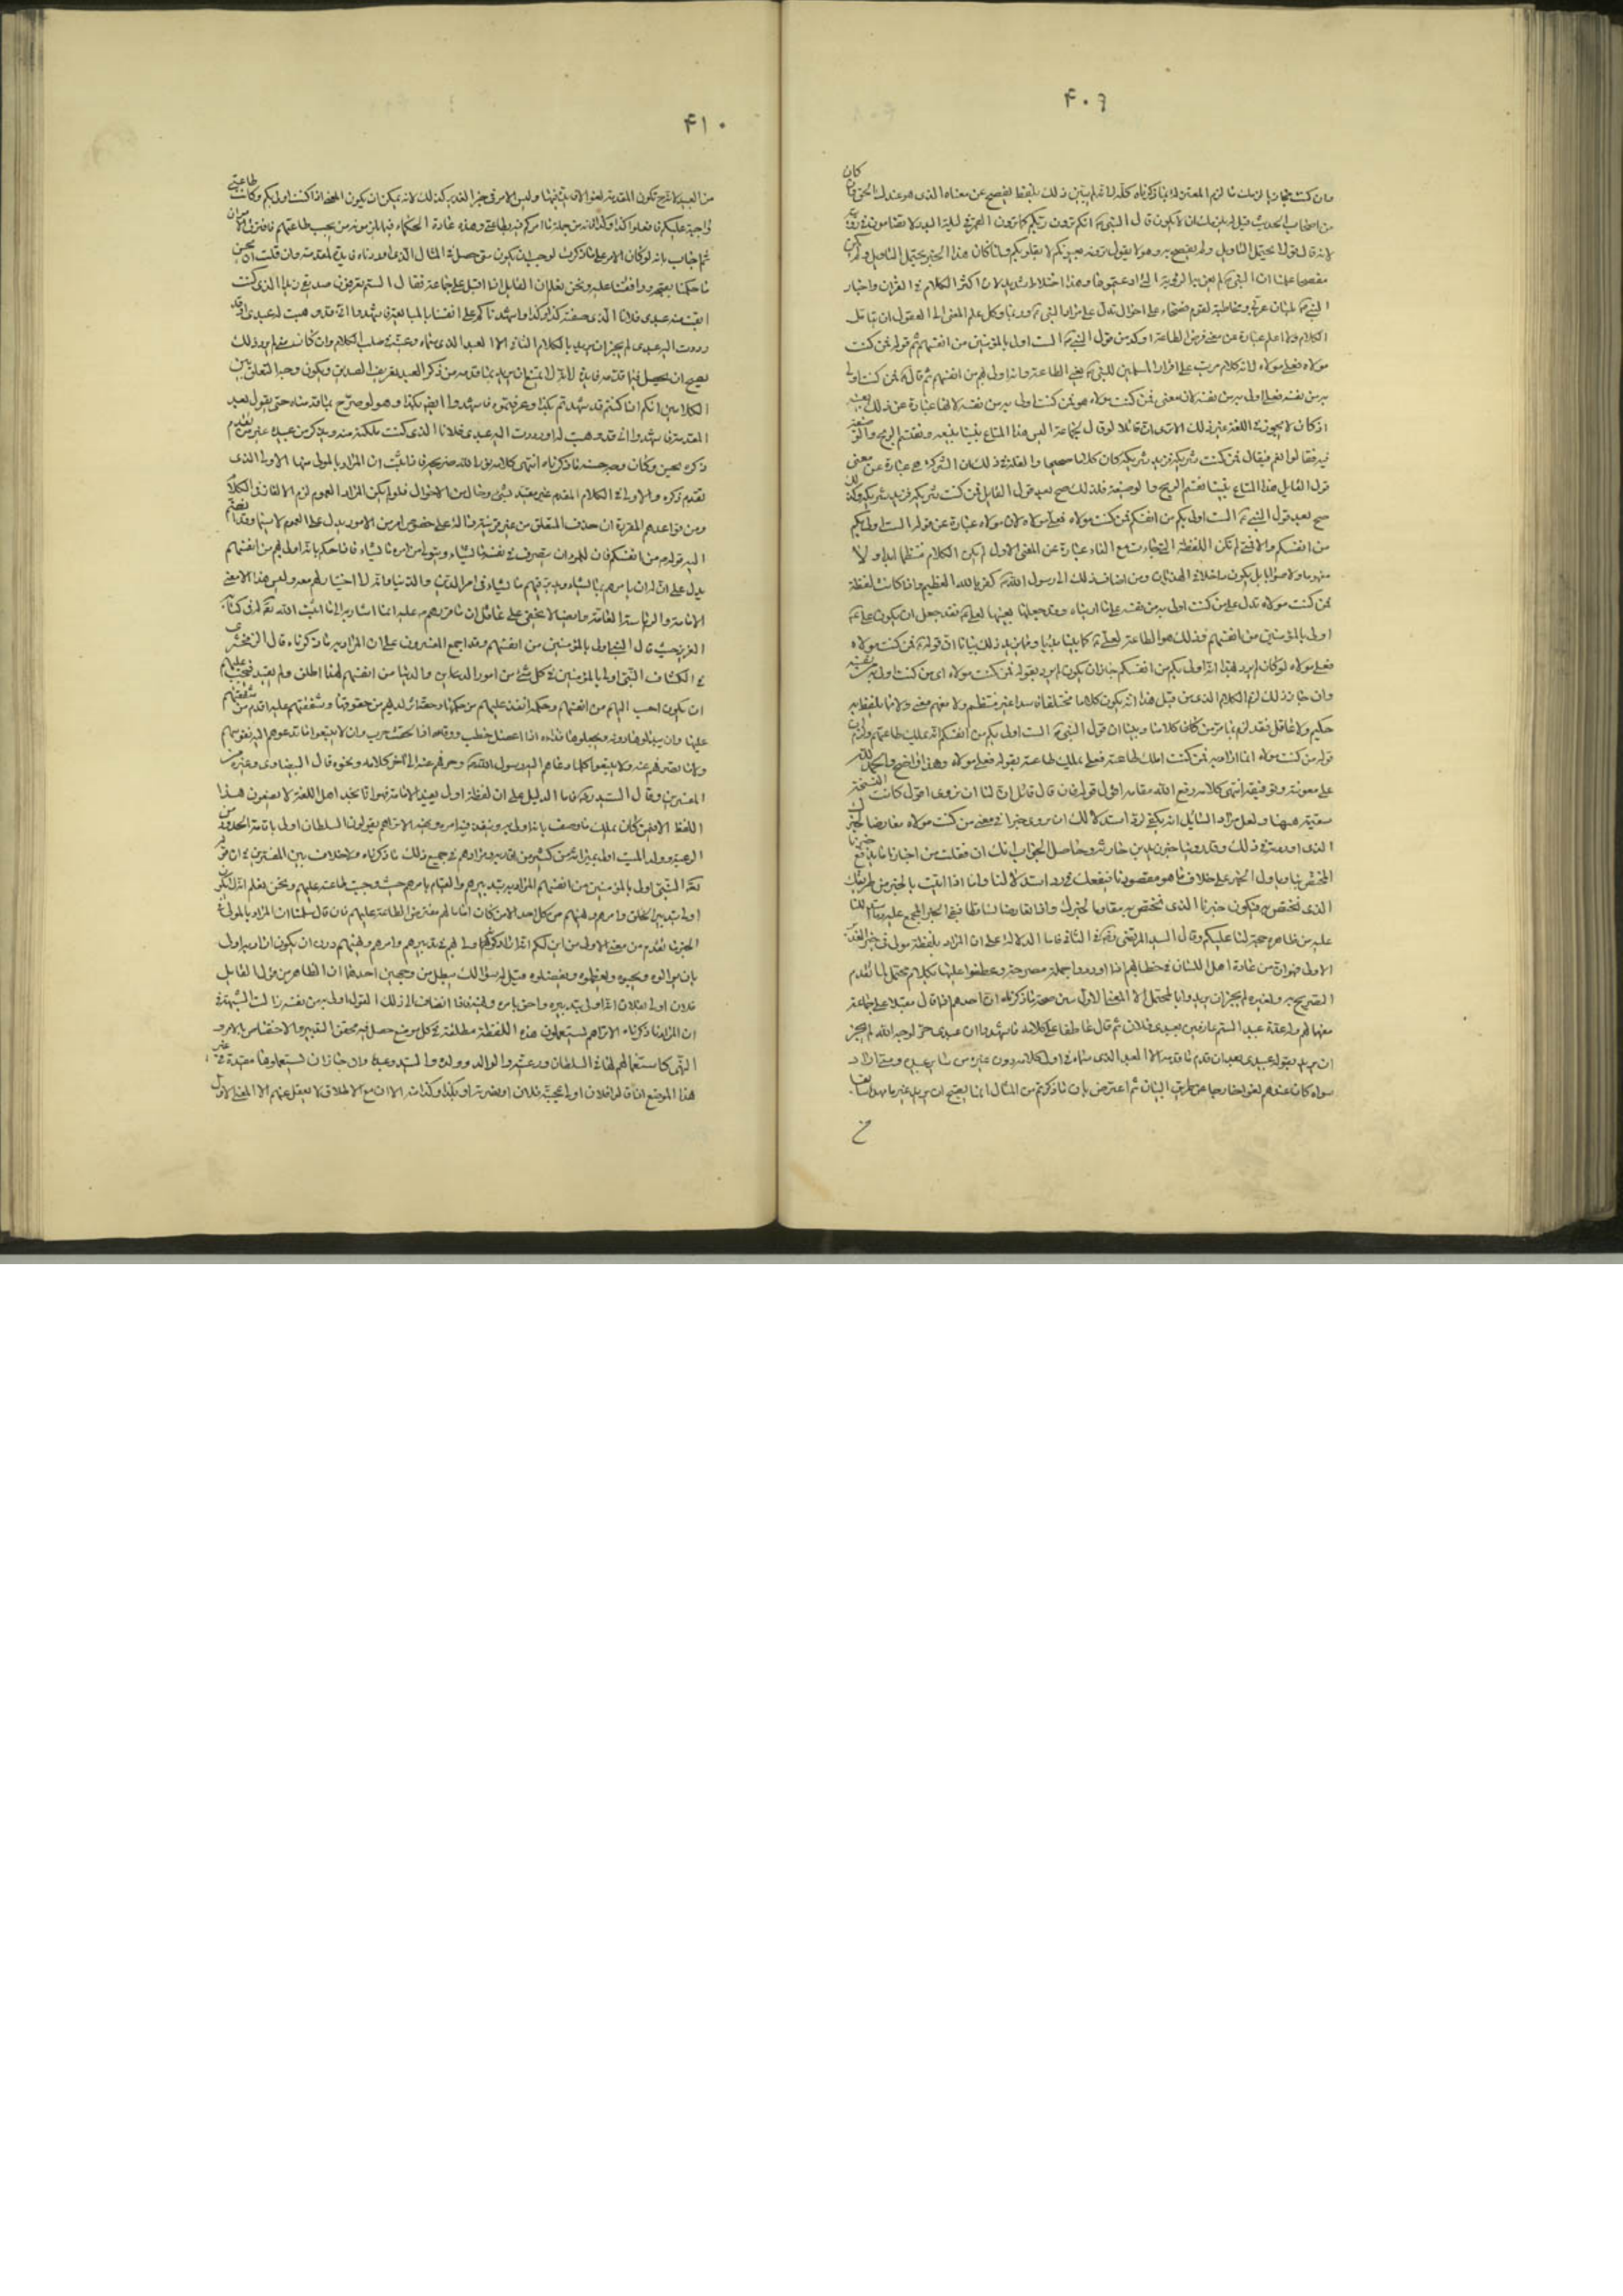 ۴۰۹
كان
وان كنت
من اصحاب الحديث قيل له يلزمك ان لا يكون قال النبي انكم ترون ربكم كما ترون القمر في ليلة البدر لا تضامون في رؤيته
لانه قال قولا يحتمل التاويل ولم يفصح به وهو لا يقول ترونه بعيونكم لا بقلوبكم ولما كان هذا الخبر يحتمل التاويل ولم يكن
مفصحا علمنا ان النبي لم يعن به الرؤية التي ادعيتموها وهذا اختلاط شديد لان اكثر الكلام في القران واخبار
النبي بلسان عربي ومخاطبة لقوم فصحاء على احوال تدل على مراد النبي وربما وكل علم المعنى الى العقول ان يتامل
الكلام ولا اعلم عبارة عن معنى فرض الطاعة اوكد من قول النبي الست اولى بالمؤمنين من انفسهم ثم قوله فمن كنت
مولاه فعلي مولاه لانه كلام مرتب على اقرار المسلمين للنبي يعني الطاعة وانه اولى بهم من انفسهم ثم قال فمن كنت اولى
به من نفسه فعلي اولى به من نفسه لان معنى فمن كنت مولاه هو فمن كنت اولى به من نفسه لانها عبارة عن ذلك بعينه
اذ كان لا يجوز في اللغة غير ذلك الا ترى ان قائلا لو قال لجماعة اليس هذا المتاع بيننا نبيعه ونقتسم الربح والوضيعة
فيه فقالوا نعم فقال فمن كنت شريكه فزيد شريكه كان كلاما صحيحا والعلة في ذلك ان الشركة هي عبارة عن معنى
قول القائل هذا المتاع بيننا نقتسم الربح والوضيعة فلذلك صح بعد قول القائل فمن كنت شريكه فزيد شريكه وكذلك
صح بعد قول النبي الست اولى بكم من انفسكم فمن كنت مولاه فعلي مولاه لان مولاه عبارة عن قوله الست اولى بكم
من انفسكم والا فمتى لم تكن اللفظة التي جاءت مع الفاء عبارة عن المعنى الاول لم يكن الكلام منتظما ابدا ولا
مفهوما ولا صوابا بل يكون داخلا في الهذيان ومن اضاف ذلك الى رسول الله كفر بالله العظيم واذا كانت لفظة
فمن كنت مولاه تدل على من كنت اولى به من نفسه على ما اريناه وقد جعلها بعينها لعلي فقد جعل ان يكون علي
اولى بالمؤمنين من انفسهم وذلك هو الطاعة لعلي كما بينا بديا ومما يزيد ذلك بيانا ان قوله فمن كنت مولاه
فعلي مولاه لو كان لم يرد بهذا انه اولى بكم من انفسكم جاز ان يكون لم يرد بقوله فمن كنت مولاه اي من كنت اولى به من نفسه
وان جاز ذلك لزم الكلام الذي من قبل هذا انه يكون كلاما مختلطا فاسدا غير منتظم ولا مفهم معنى ولا مما يلفظ به
حكيم ولا عاقل فقد لزم بما مر من كلامنا وبينا ان قول النبي الست اولى بكم من انفسكم انه يملك طاعتهم ولزم ان
قوله من كنت مولاه انما اراد به فمن كنت املك طاعته فعلي يملك طاعته بقوله فعلي مولاه وهذا واضح والحمد لله
على معونته وتوفيقه انتهى كلامه رفع الله مقامه اقول قوله فان قال قائل ان لنا ان نروي اقول كانت النسخة
سقيمة هيهنا ولعل مراد السائل انه يكفي لرد استدلالك ان نروي خبرا في معنى من كنت مولاه معارضا لخبرك
الذي اوردته في ذلك وقد روينا خبر زيد بن حارثة وحاصل الجواب انك ان فعلت من اخبارنا ما يدفع خبرنا
المختص بنا وناول الخبر على خلاف ما هو مقصودنا فينفعك في رد استدلالنا واما اذا اتيت بالخبر من طريقك
الذي تختص به فيكون خبرنا الذي نختص به مقاوما لخبرك واذا تعارضا تساقطا فبقي الخبر المجمع عليه
عليه من ظاهره حجة لنا عليكم وقال السيد المرتضى في الشافي فاما الدلالة على ان المراد بلفظة مولى في خبر الغدير
الاولى فهو ان من عادة اهل اللسان في خطابهم اذا اوردوا جملة مصرحة وعطفوا عليها بكلام محتمل لما تقدم
التصريح به ولغيره لم يجز ان يريدوا بالمحتمل الا المعنى الاول يبين صحة ما ذكرناه ان احدهم اذا قال مقبلا على جماعة
مفهما لهم وله عدة عبيد الستم عارفين بعبدي فلان ثم قال عاطفا على كلامه فاشهدوا ان عبدي حر لوجه الله لم يجز
ان يريد بقوله عبدي بعد ان قدم ما قدمه الا العبد الذي سماه في اول كلامه دون غيره من سائر عبيده ومتى اراد
سواه كان عندهم لغوا خارجا عن طريق البيان ثم اعترض بان ما ذكرتم من المثال انما يقبح ان يريد غير ما مهد سابقا
۴۱۰
من العبيد لانه ح تكون المقدمة لغوا لا فايدة فيها وليس الامر في خبر الغدير كذلك لانه يمكن ان يكون المعنى اذا كنت اولى بكم وكانت طاعتي
واجبة عليكم فافعلوا كذا وكذا فانه من جملة ما امركم فيه بطاعتي وهذه عادة الحكماء فيما يلزمونه من يجب طاعتهم فافترق الامران
ثم اجاب بانه لو كان الامر على ما ذكرت لوجب ان يكون متى حصل في المثال الذي اوردناه فايدة لمقدمته وان قلت ان يحسن
ما حكمنا بقبحه ووافقتنا عليه ونحن نعلم ان القائل اذا اقبل على جماعة فقال الستم تعرفون صديقي زيدا الذي كنت
ابتعت منه عبدي فلانا الذي صفته كذا وكذا واشهدناكم على انفسنا بالمبايعة فاشهدوا اني قد وهبت له عبدي او قد
رددت اليه عبدي لم يجز ان يريد بالكلام الثاني الا العبد الذي سماه وعينه في صلب الكلام وان كان متى لم يرد ذلك
يصح ان يحصل فيما قدمه فايدة لانه لا يمتنع ان يريد بما قدمه من ذكر العبد تعريف الصديق ويكون وجه التعلق بين
الكلامين انكم اذا كنتم قد شهدتم بكذا وعرفتموه فاشهدوا ايضا بكذا وهو لو صرح بما قدمناه حتى يقول بعد
المقدمة فاشهدوا اني قد وهبت له او رددت اليه عبدي فلانا الذي كنت ملكته منه ويذكر من عبيده غير من تقدم
ذكره لحسن وكان وجه حسنه ما ذكرناه انتهى كلامه نور الله ضريحه فاذا ثبت ان المراد بالمولى هيهنا الاولى الذي
تقدم ذكره والاولى في الكلام المقدم غير مقيد بشئ وحال من الاحوال فلو لم يكن المراد العموم لزم الالغاز في الكلام
ومن قواعدهم المقررة ان حذف المتعلق من غير قرينة دالة على خصوص امر من الامور يدل على العموم لا سيما وقد انضم
اليه قوله من انفسكم فان للمرء ان يتصرف في نفسه ما يشاء ويتولى من امره ما يشاء فاذا حكم بانه اولى بهم من انفسهم
يدل على ان له ان يامرهم بما يشاء ويدبر فيهم ما يشاء في امر الدين والدنيا وانه لا اختيار لهم معه وليس هذا الا معنى
الامامة والرياسة العامة وايضا لا يخفى على عاقل ان ما قررهم عليه انما اشار به الى ما اثبت الله تعالى له في كتابه
العزيز حيث قال النبي اولى بالمؤمنين من انفسهم وقد اجمع المفسرون على ان المراد به ما ذكرناه قال الزمخشري
في الكشاف النبي اولى بالمؤمنين في كل شئ من امور الدين والدنيا من انفسهم لهذا اطلق ولم يقيد فيجب عليهم
ان يكون احب اليهم من انفسهم وحكمه انفذ عليهم من حكمها وحقه اثر لديهم من حقوقها وشفقتهم عليه اقدم من شفقتهم
عليها وان يبذلوها دونه ويجعلوها فداءه اذا اعضل خطب ووقاءه اذا لحقت حرب وان لا يتبعوا ما تدعوهم اليه نفوسهم
ولا ما تصرفهم عنه ويتبعوا كلما دعاهم اليه رسول الله وصرفهم عنه الى اخر كلامه ونحوه قال البيضاوي وغيره من
المفسرين وقال السيد فاما الدليل على ان لفظة اولى تفيد الامامة فهو انا نجد اهل اللغة لا يضعون هذا
اللفظ الا فيمن كان يملك ما وصف بانه اولى به وينفذ فيه امره ونهيه الا تراهم يقولون السلطان اولى باقامة الحدود من
الرعية وولد الميت اولى بميراثه من كثير من اقاربه ومرادهم في جميع ذلك ما ذكرناه ولا خلاف بين المفسرين في ان قوله
تعالى النبي اولى بالمؤمنين من انفسهم المراد به انه اولى بتدبيرهم والقيام بامرهم حيث وجبت طاعته عليهم ونحن نعلم انه لا يكون
اولى بتدبير الخلق وامرهم ونهيهم من كل احد الا من كان اماما لهم مفترض الطاعة عليهم فان قال سلمنا ان المراد بالمولى في
الخبر ما تقدم من معنى الاولى من اين لكم انه اراد كونه اولى بهم في تدبيرهم وامرهم ونهيهم دون ان يكون اراد به اولى
بان يوالوه ويحبوه ويعظموه ويفضلوه قيل له سؤالك يبطل من وجهين احدهما ان الظاهر من قول القائل
فلان اولى بفلان انه اولى بتدبيره واحق بامره ونهيه فاذا انضاف الى ذلك القول اولى به من نفسه زالت الشبهة في
ان المراد ما ذكرناه الا تراهم يستعملون هذه اللفظة مطلقة في كل موضع حصل فيه تحقق التدبير والاختصاص بالامر و
النهي كاستعمالهم لها في السلطان ورعيته والوالد وولده والسيد وعبده وان جاز ان يستعملوها مقيدة في غير
هذا الموضع اذا قالوا فلان اولى بمحبة فلان او بنصرته او بكذا وكذا منه الا ان مع الاطلاق لا يعقل عنهم الا المعنى الاول